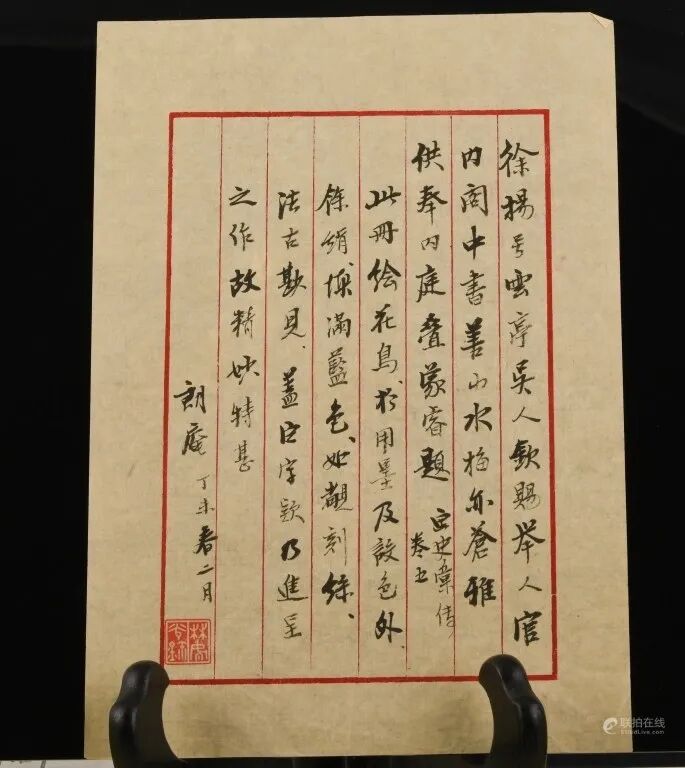 徐揚号雲亭吳人欽賜举人官
内阁中書善山水梅亦蒼雅
供奉内庭叠蒙睿題
画史彙传
卷五
此册绘花鳥、於用墨及設色外
餘绢滿藍色、如覩刻絲、
法古尠見、蓋臣字款乃進呈
之作故精妙特甚
朗庵
丁未春二月
联拍在线
51bidLive.com